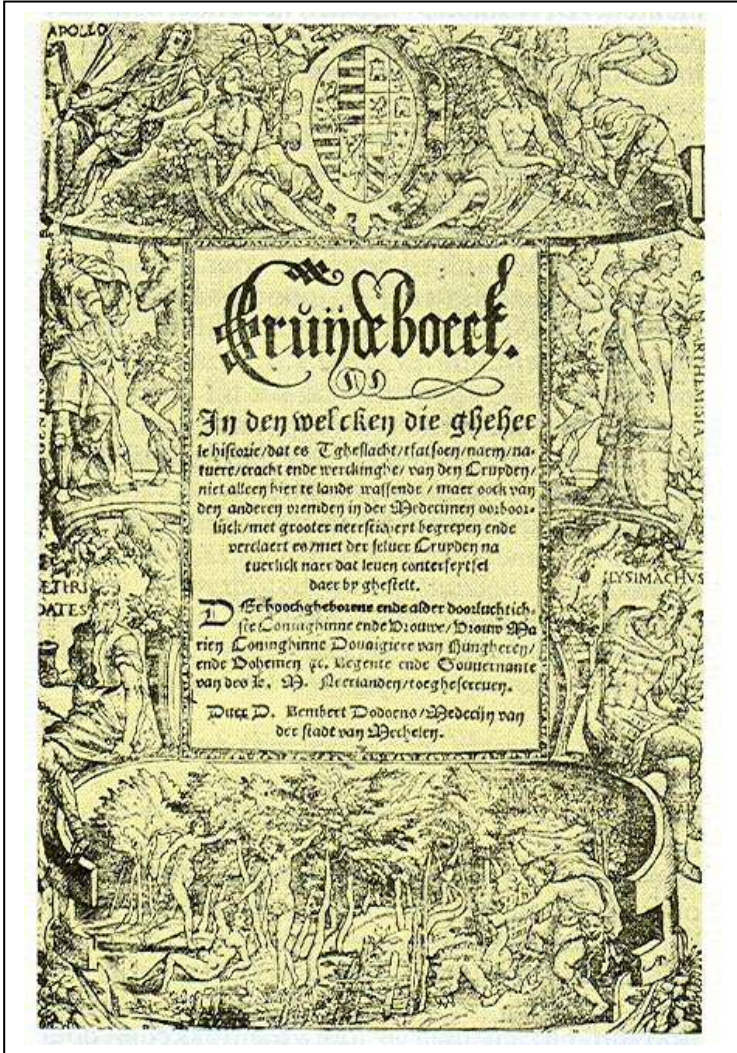 APOLLO
Cruydeboeck.
In den welcken die gheheele
le historie/dat es Tgheslacht/tfatsoen/naem/na-
tuere/cracht ende werckinghe/van den Cruyden/
niet alleen hier te lande wassende/maer oock van
den anderen vremden in der Medecijnen oorboor-
lijck/met grooter neersticheyt begrepen ende
verclaert es/met der selver Cruyden na
tuerlick naer dat leven conterfeytsel
daer by ghestelt.
ARTHEMISIA
DEr hoochgheborene ende alder doorluchtich-
ste Coninghinne ende Vrouwe/Vrouw Ma
rien Coninghinne Douaigiere van Hungheren/
ende Bohemen &c. Regente ende Gouvernante
van des K. M. Neerlanden/toeghescreven.
Duer D. Rembert Dodoens/Medecijn van
der stadt van Mechelen.
LYSIMACHVS